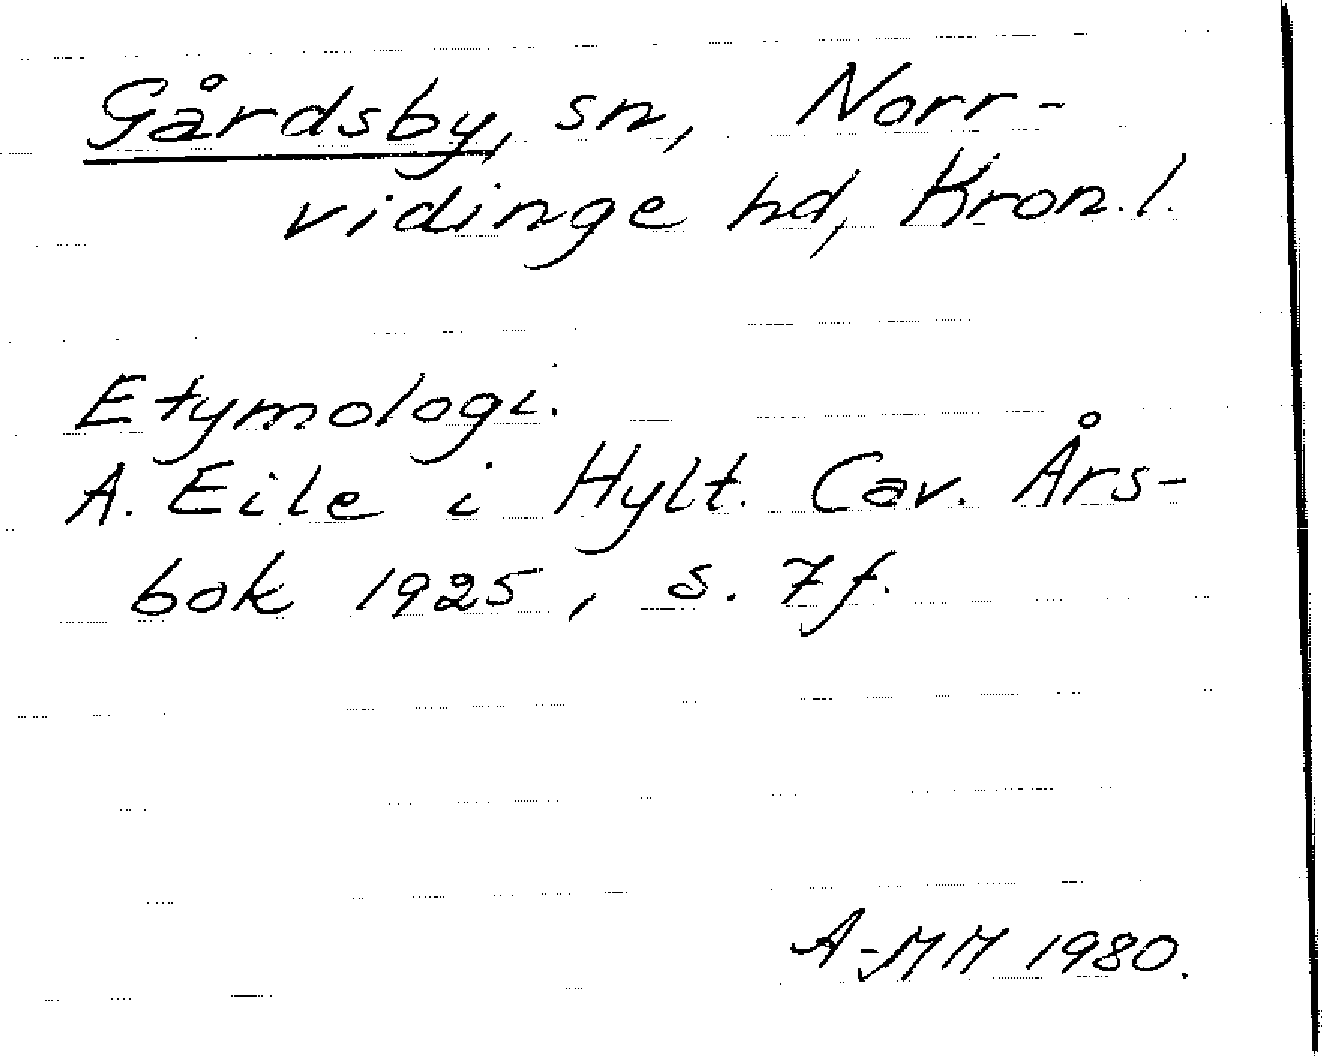 Gårdsby, sn, Norr-
vidinge hd, Kron.l.
Etymologi.
A. Eile i Hylt. Cav. Års-
bok 1925, s. 7f.
A-MH 1980.